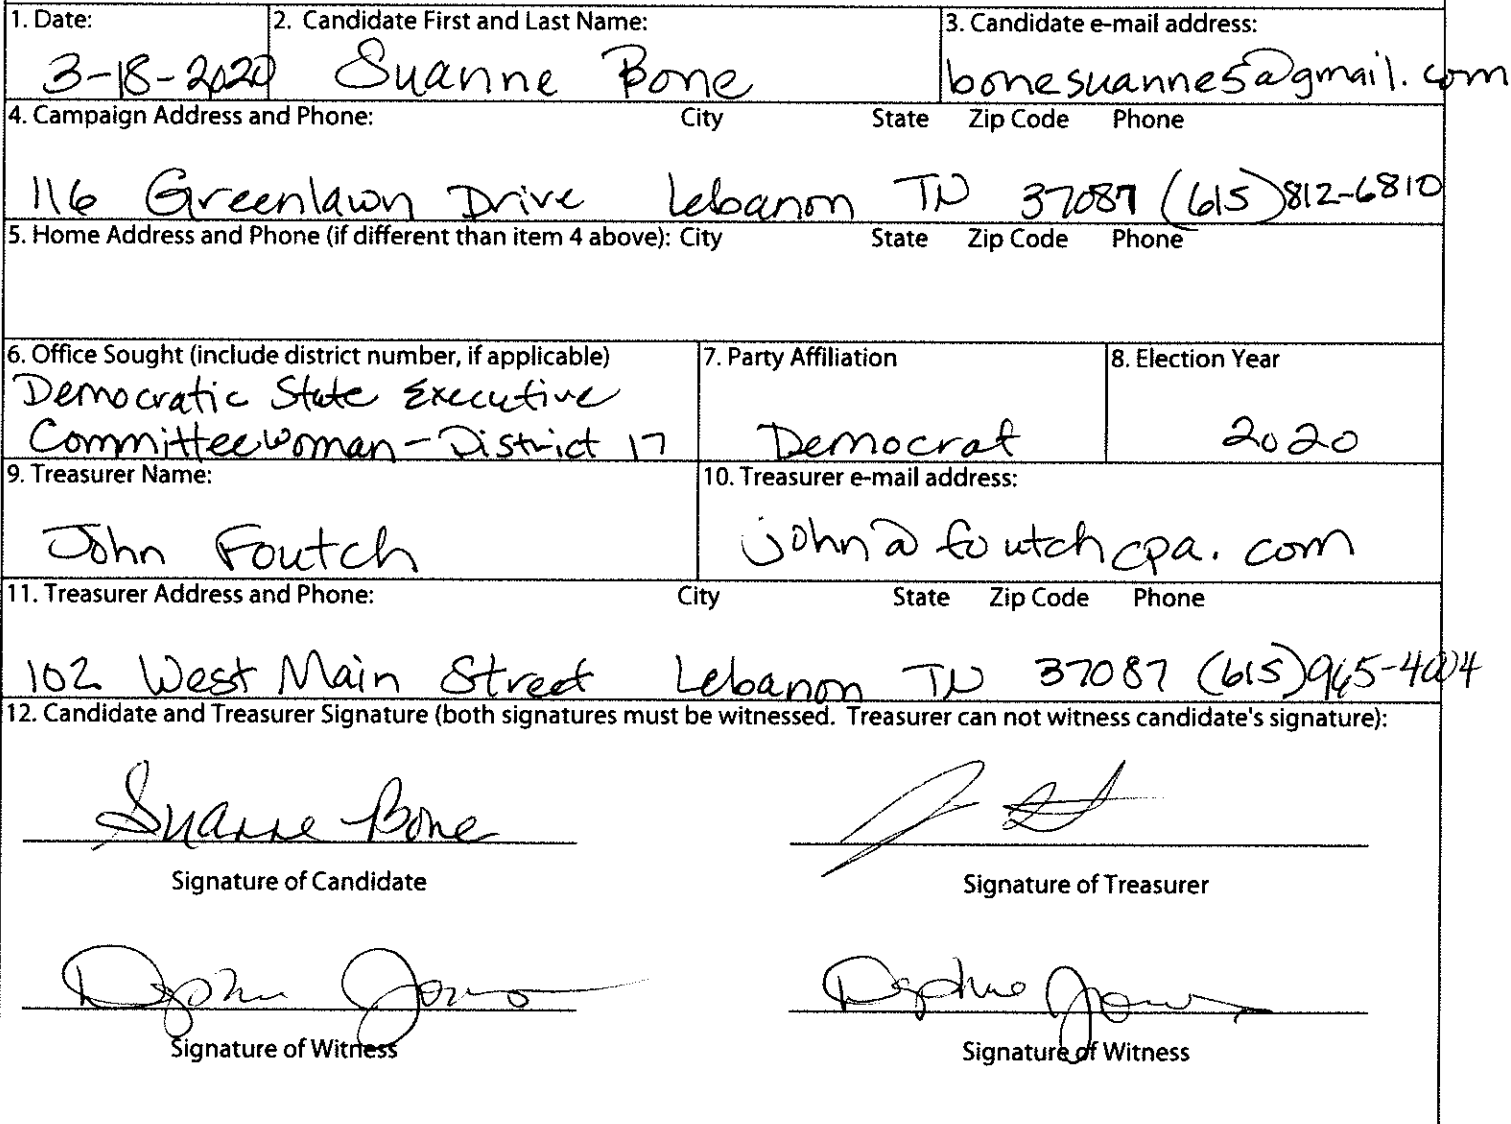 1. Date: 2. Candidate First and Last Name: 3. Candidate e-mail address:
3-18-2020 Suanne Bone bonesuanne5@gmail.com
4. Campaign Address and Phone: City State Zip Code Phone
116 Greenlawn Drive Lebanon TN 37087 (615)812-6810
5. Home Address and Phone (if different than item 4 above): City State Zip Code Phone
6. Office Sought (include district number, if applicable) 7. Party Affiliation 8. Election Year
Democratic State Executive
Committeewoman-District 17 Democrat 2020
9. Treasurer Name: 10. Treasurer e-mail address:
John Foutch john@foutchcpa.com
11. Treasurer Address and Phone: City State Zip Code Phone
102 West Main Street Lebanon TN 37087 (615)
12. Candidate and Treasurer Signature (both signatures must be witnessed. Treasurer can not witness candidate's signature):
Suanne Bone
Signature of Candidate Signature of Treasurer
Signature of Witness Signature of Witness